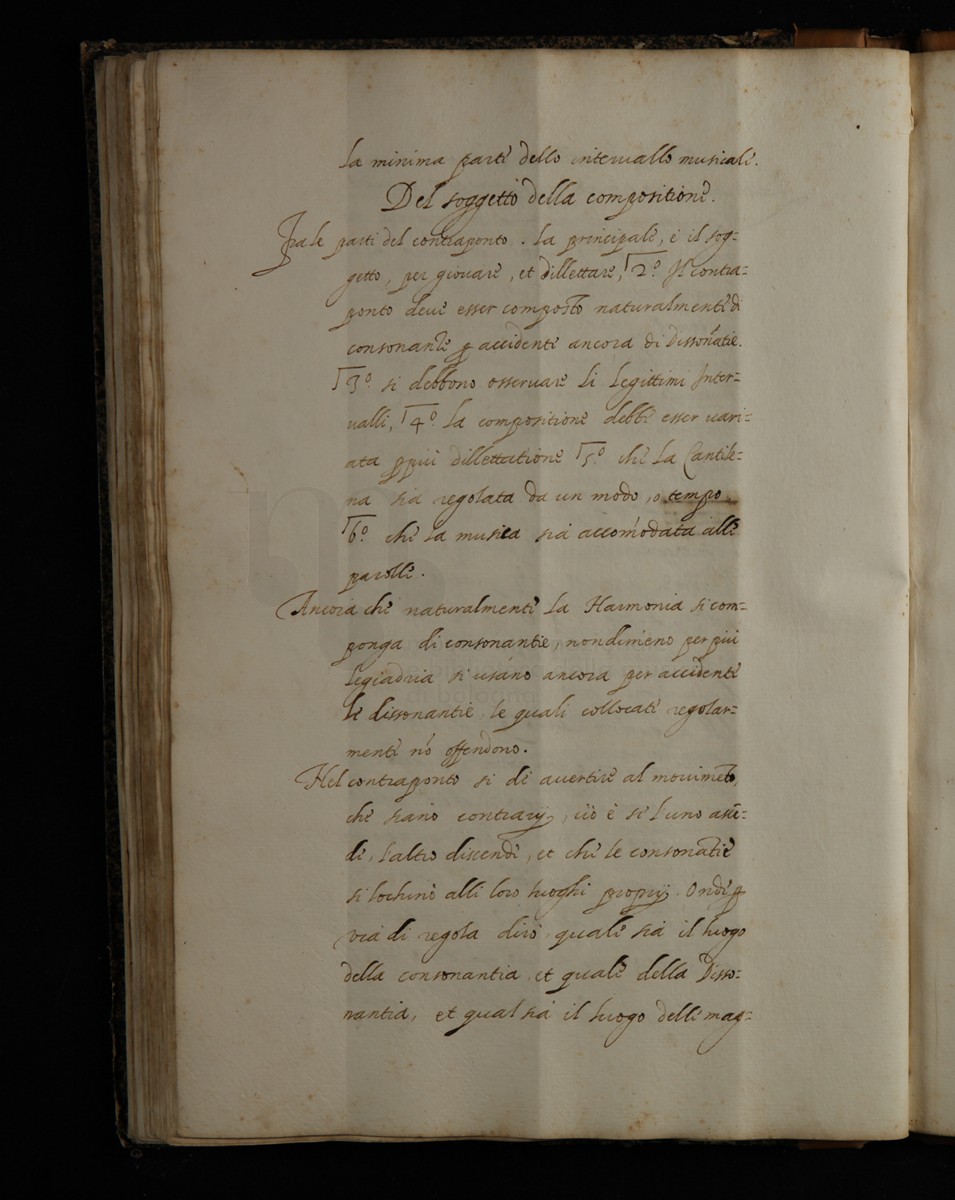 la minima parte dello interuallo musicale.
Del soggetto della compositione.
Fra le parti del contraponto. la principale, è il sog=
getto, per giouare, et dillettare, 2º. Il contra=
ponto deue esser composto naturalmente di
consonante ꝑ accidente ancora di Dissonātie.
3º. si debbono osseruare li legittimi Inter=
ualli, 4º. la compositione debbe esser uari=
ata ꝑ piu dillettatione 5º. che la Cantile=
na sia regolata da un modo, o tempo.
6º. che la musica sia accom̄odata alle
parolle.
Ancora che naturalmente la Harmonia si com=
ponga di consonantie, nondimeno per piu
legiadria si usano ancora per accidente
le dissonantie, le quali collocate regolar=
mente nō offendono.
Nel contraponto si de auertire al mouimēto,
che siano contrarij, ciò è se l'uno ascē=
de, l'altro discende, et che le consonātie
si lochino alli loro luoghi proprij. Onde ꝑ
via di regola dirò quale sia il luogo
della consonantia, et quale della Disso=
nantia, et qual sia il luogo delle mag=